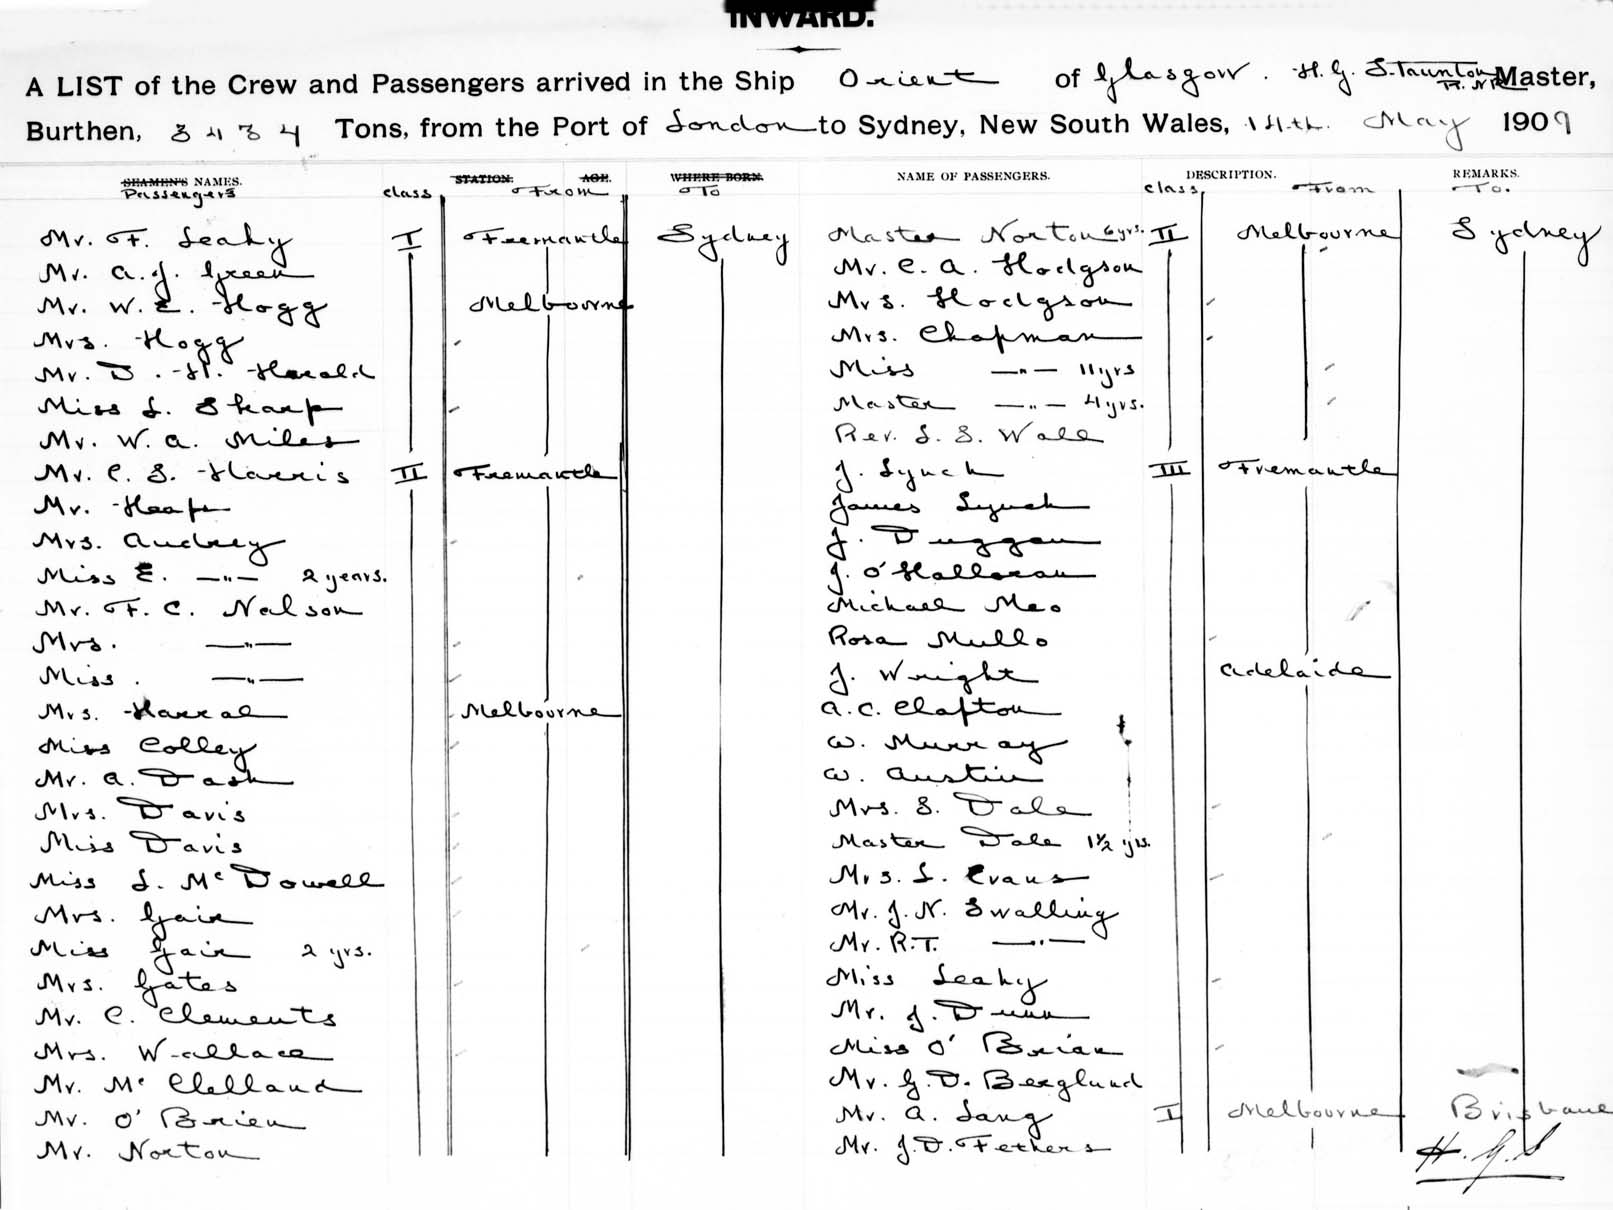 INWARD.
A LIST of the Crew and Passengers arrived in the Ship Orient of Glasgow. H. G. S. Taunton R.N.R. Master,
Burthen, 3434 Tons, from the Port of London to Sydney, New South Wales, 14th. May 1909
SEAMEN'S NAMES. STATION. AGE. WHERE BORN.
Passengers class From To
Mr. F. Leahy I Fremantle Sydney
Mr. A. J. Green
Mr. W. E. Hogg Melbourne
Mrs. Hogg
Mr. D. H. Harald
Miss L. Sharp
Mr. W. A. Miles
Mr. C. S. Harris II Fremantle
Mr. Heap
Mrs. Audrey
Miss E. —"— 2 years.
Mr. F. C. Nelson
Mrs. —"—
Miss. —"—
Mrs. Harral Melbourne
Miss Colley
Mr. A. Dash
Mrs. Davis
Miss Davis
Miss L. McDowell
Mrs. Gair
Miss Gair 2 yrs.
Mrs. Gates
Mr. C. Clements
Mrs. Wallace
Mr. McClelland
Mr. O'Brien
Mr. Norton
NAME OF PASSENGERS. DESCRIPTION. REMARKS.
class From To.
Master Norton 6 yrs. II Melbourne Sydney
Mr. C. A. Hodgson
Mrs. Hodgson
Mrs. Chapman
Miss —"— 11 yrs
Master —"— 4 yrs.
Rev. S. S. Wall
J. Lynch III Fremantle
James Lynch
J. Duggan
J. O'Halloran
Michael Meo
Rosa Mullo
J. Wright Adelaide
A. C. Clapton
W. Murray
W. Austin
Mrs. S. Dale
Master Dale 1½ yrs.
Mrs. L. Evans
Mr. J. N. Swalling
Mr. R. T. —"—
Miss Leahy
Mr. J. Dunn
Miss O'Brian
Mr. G. D. Berglund
Mr. A. Lang I Melbourne Brisbane
Mr. J. D. Fethers
H. G. S